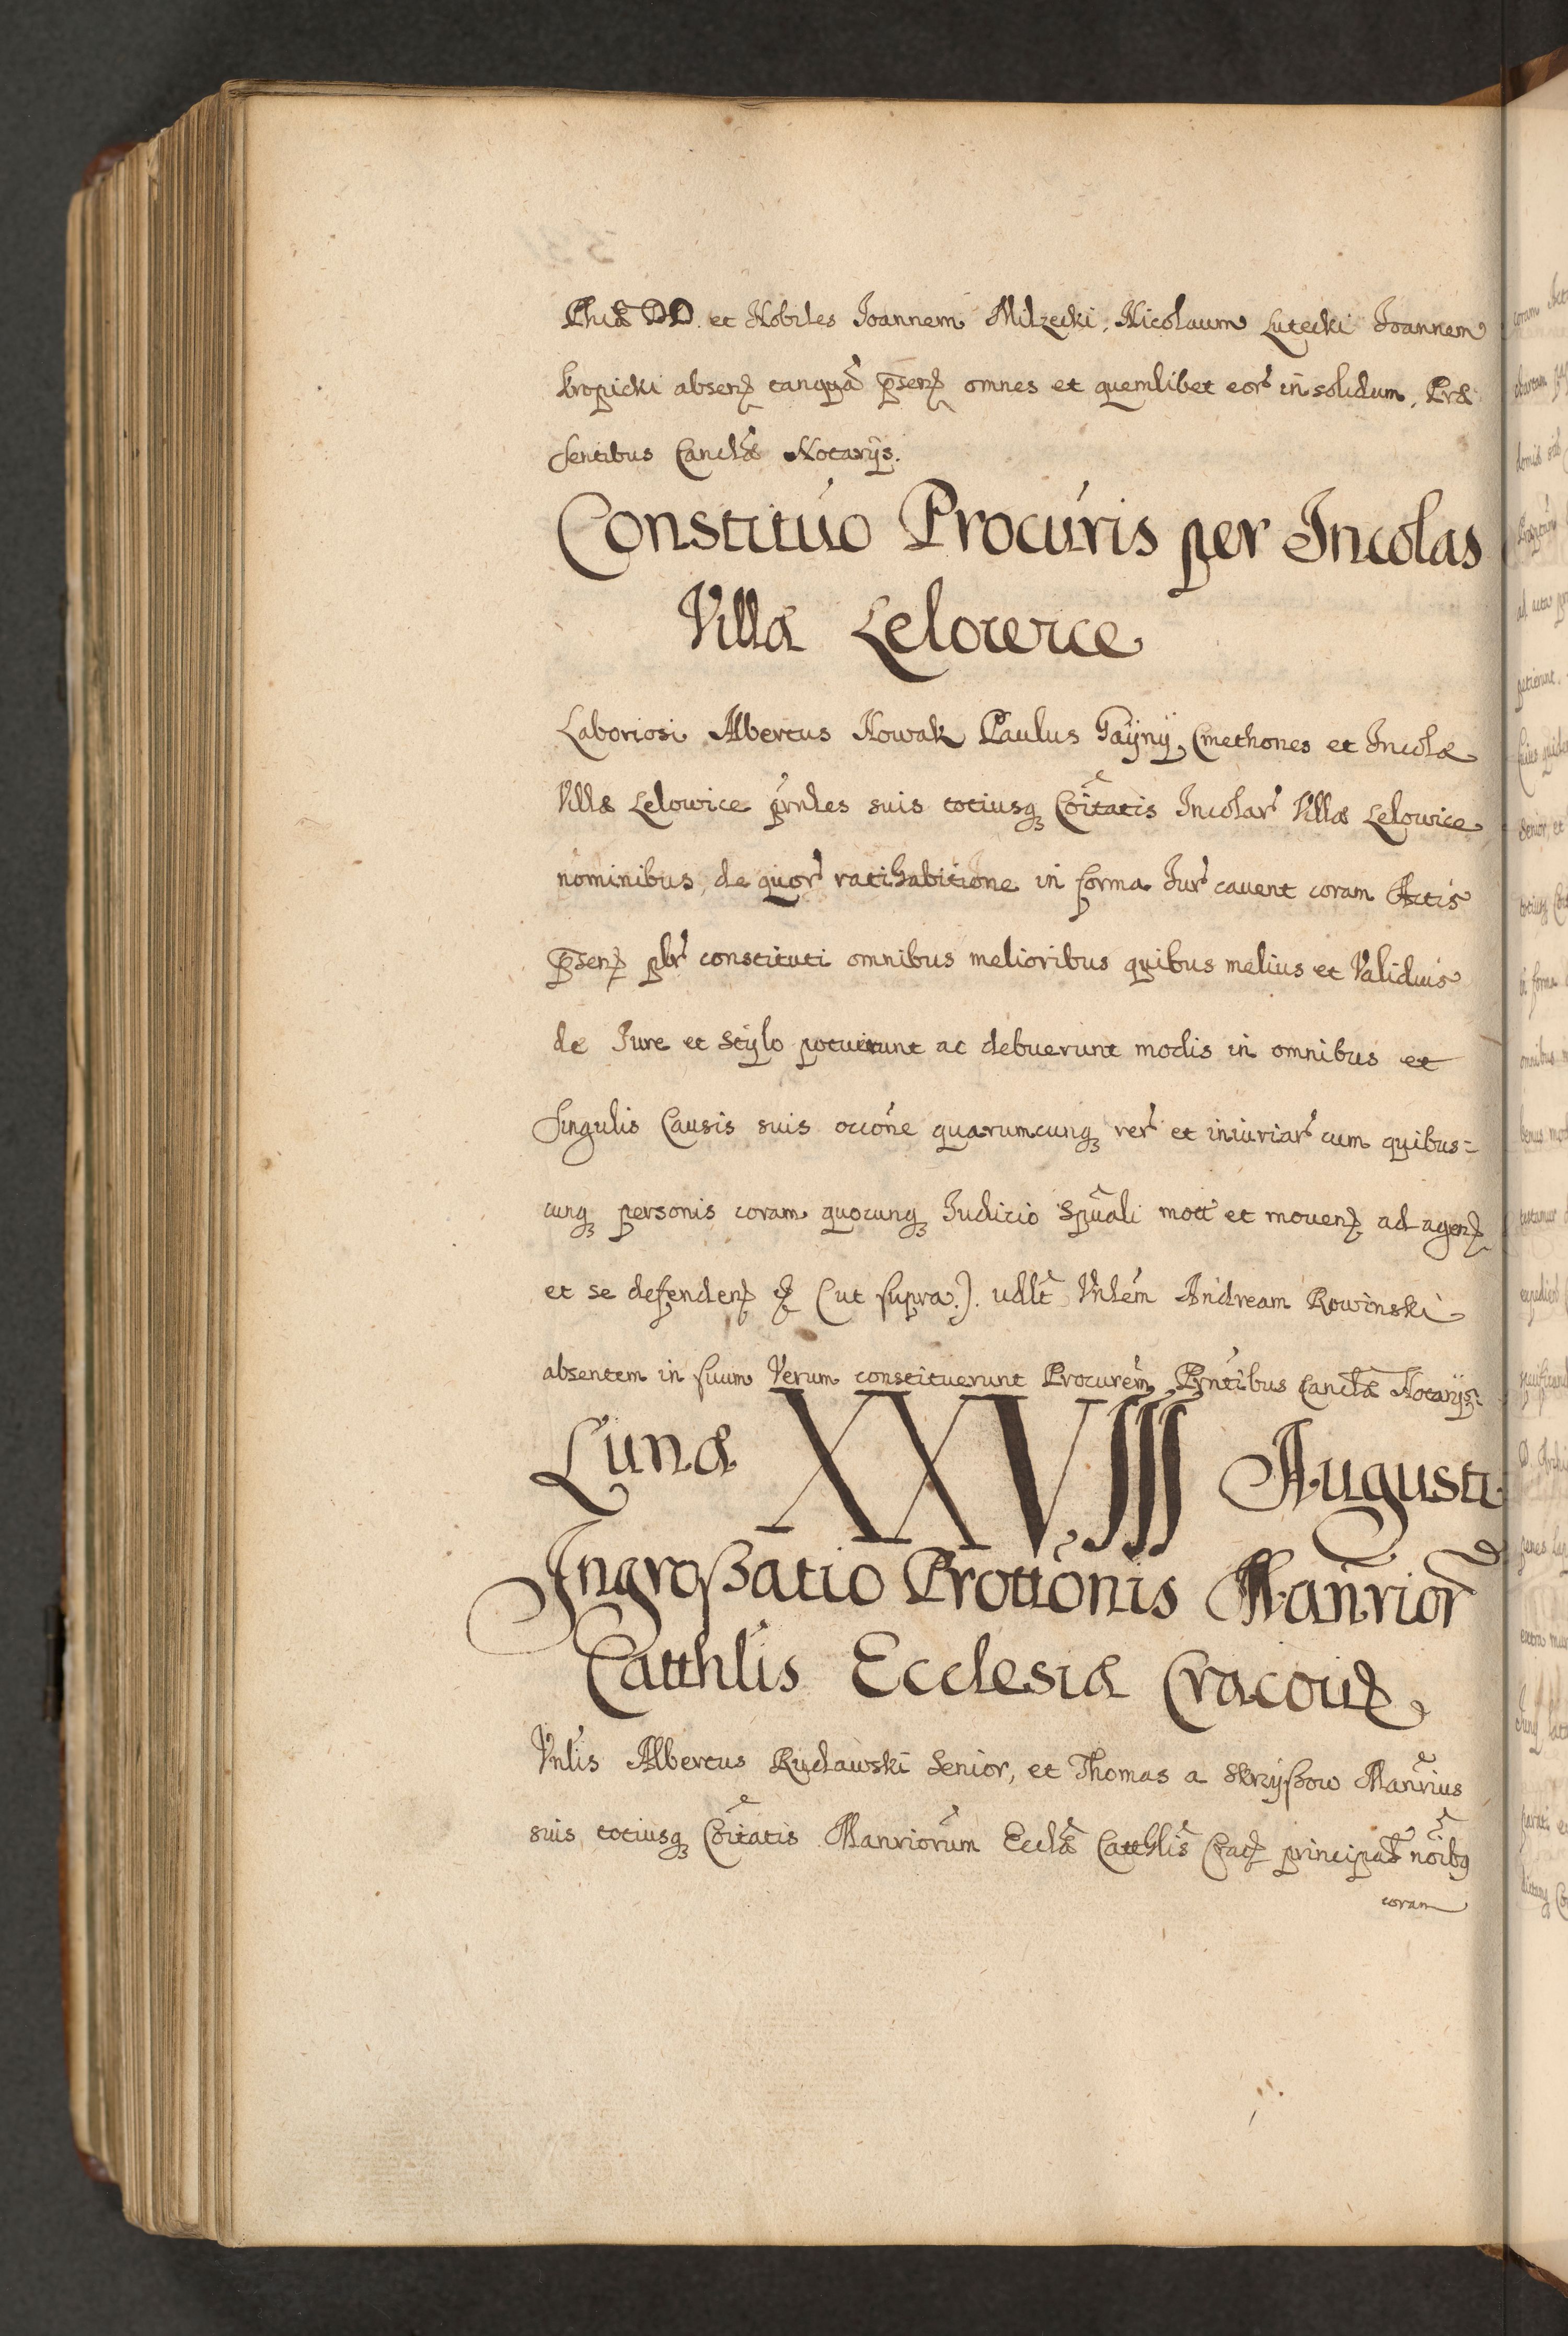 DD. et Nobiles Joannem Milzecki, Nicolaum Lutecki Joannem
Kropicki absenȝ tanquã p̄senȝ omnes et quemlibet eor' in solidum, Præ
sentibus Canclæ Notarijs.
Constituo Procuris per Incolas
Villæ Lelowice
Laboriosi Albertus Nowak Paulus Gaÿnÿ, Cmethones et Incolæ
Villæ Lelowice prnles suis totiusq Coitatis Incolar' Villæ Lelowice
nominibus, de quor' ratihabitione in forma Jur' cauent coram Actis
p̄senȝ plr' constituti omnibus melioribus quibus melius et Validius
de Jure et Stÿlo potuerunt ac debuerunt modis in omnibus et
Singulis Causis suis occõne quarumcunq rer' et iniuriar' cum quibus=
cunq personis coram quocunq Judicio Spuali mott et mouenȝ ad agenȝ
et se defendenȝ & (ut supra.). Vnlem Andream Rowinski
absentem in suum Verum constituerunt Procurem, Pntibus Canclæ Notarijs.
Lunæ XXVIII Augusti
Ingroßatio Prottõnis Manrior
Catthlis Ecclesiæ Cracouȝ
Vnlis Albertus Rudawski Senior, et Thomas a Skrzÿßow Manrius
suis totiusq Coitatis Manriorum Ecclæ Catthlis Cracȝ principal noibq
coram